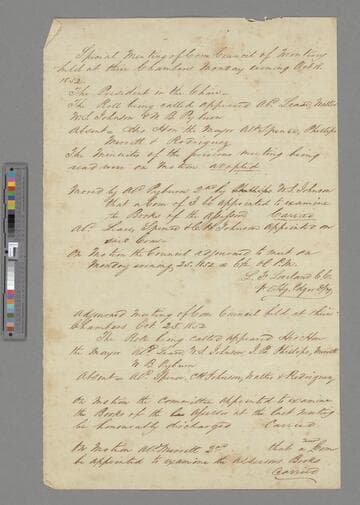 Special Meeting of Com Council of
held at their Chambers Monday evening Oct
1852
The President in the Chair—
The Roll being called appeared Alds. Walter
W. S. Johnson & W. B. Pyburn
Absent— His Hon the Mayor Alds Spence, Phillips
Merrett & Rodriguez
The Minutes of the previous meeting being
read were on Motion adopted
Moved by Ald Pyburn 2nd by W S Johnson
that a Com of 3 be appointed to examine
the Books of the Assessor Carried
Alds. Spence & C. H. Johnson appointed on
said Com—
On Motion the Council adjourned to meet on
Monday evening 25, 1852 at O'C P.M.
C.C.
Adjourned meeting of Com Council held at their
Chambers Oct. 25. 1852
The Roll being called appeared His Hon
the Mayor Alds W S Johnson Phillips, Merrett
W B Pyburn
Absent— Alds Spence, C H Johnson, Walter & Rodriguez
On Motion the Committee appointed to examine
the Books of the Assessor at the last meeting
be honourably discharged Carried
On Motion Ald Merrett 2nd that a Com
be appointed to examine the Books
Carried